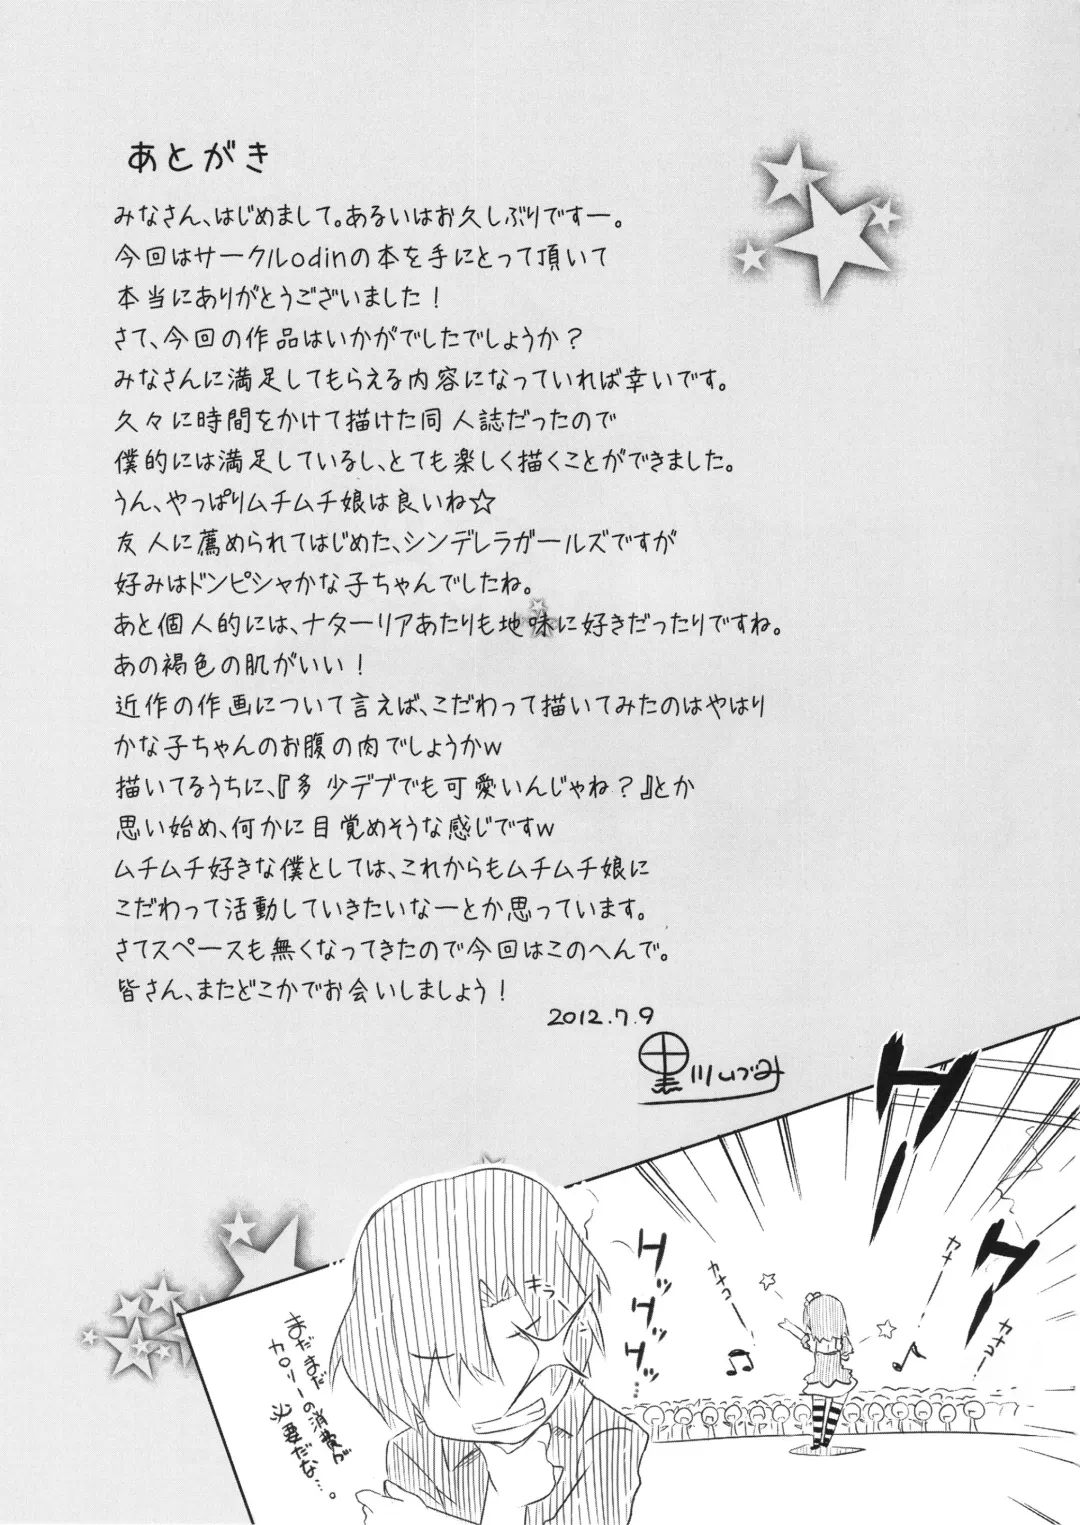 あとがき
みなさん、はじめまして。あるいはお久しぶりですー。
今回はサークルodinの本を手にとって頂いて
本当にありがとうございました！
さて、今回の作品はいかがでしたでしょうか？
みなさんに満足してもらえる内容になっていれば幸いです。
久々に時間をかけて描けた同人誌だったので
僕的には満足しているし、とても楽しく描くことができました。
うん、やっぱりムチムチ娘は良いね☆
友人に薦められてはじめた、シンデレラガールズですが
好みはドンピシャかな子ちゃんでしたね。
あと個人的には、ナターリアあたりも地味に好きだったりですね。
あの褐色の肌がいい！
近作の作画について言えば、こだわって描いてみたのはやはり
かな子ちゃんのお腹の肉でしょうかw
描いてるうちに、『多少デブでも可愛いんじゃね？』とか
思い始め、何かに目覚めそうな感じですw
ムチムチ好きな僕としては、これからもムチムチ娘に
こだわって活動していきたいなーとか思っています。
さてスペースも無くなってきたので今回はこのへんで。
皆さん、またどこかでお会いしましょう！
2012.7.9
黒川いづみ
ドーッ
ドッ
ドッドッドッ…
カナコー
カナコー
カナコー
キラーン
まだまだ
カロリーの消費が
必要だな…。